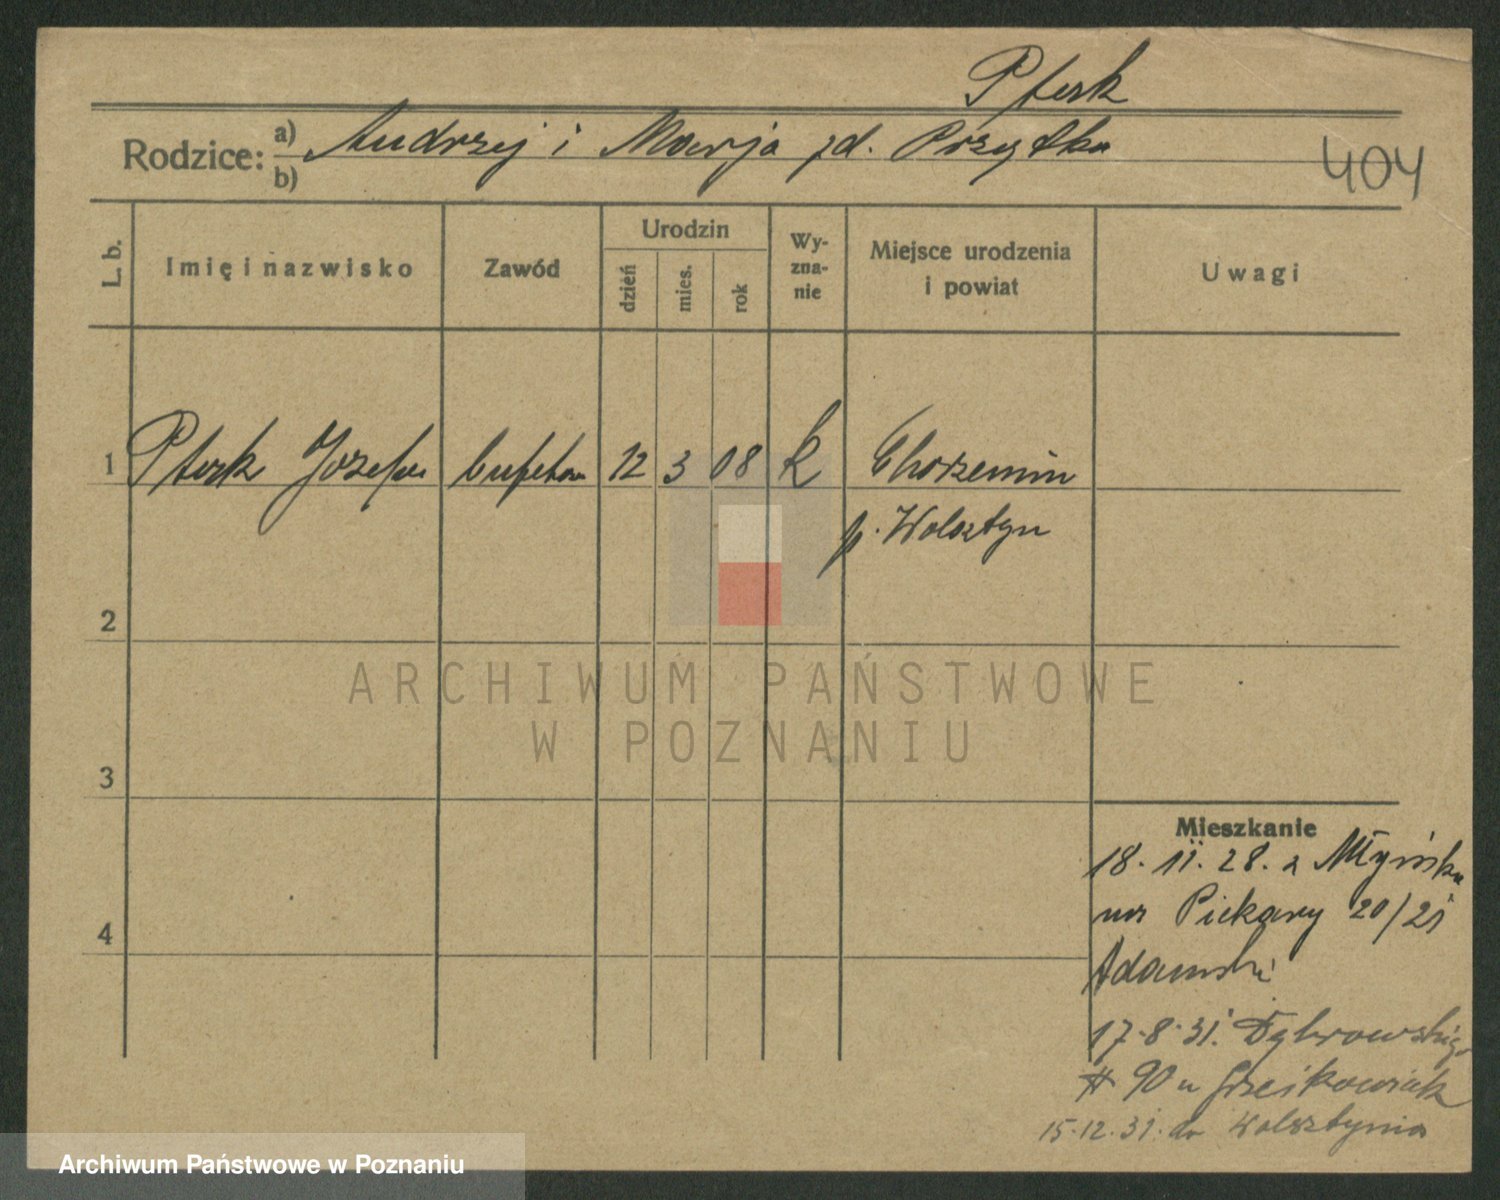 Pterk
Rodzice: a) Andrzej i Marja zd. Przytka
b)
404
L. b.
Imię i nazwisko
Zawód
Urodzin
dzień
mies.
rok
Wy-
zna-
nie
Miejsce urodzenia
i powiat
Uwagi
1 Pterk Józefa bufetow 12 3 08 k Chorzemin
p. Wolsztyn
2
3
4
ARCHIWUM PAŃSTWOWE
W POZNANIU
Mieszkanie
18. 11. 28. z Młyńska
na Piekary 20/21
Adamski
17.8.31. Dąbrowskiego
90 u
15.12.31. do Wolsztynia
Archiwum Państwowe w Poznaniu